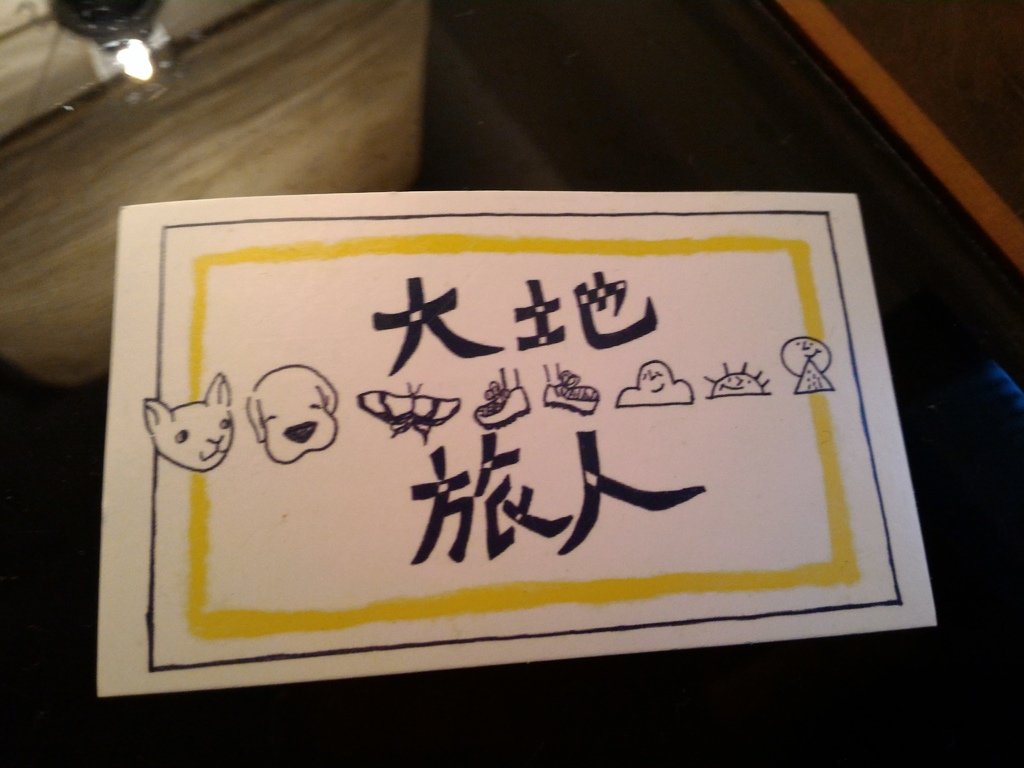 大地
旅人